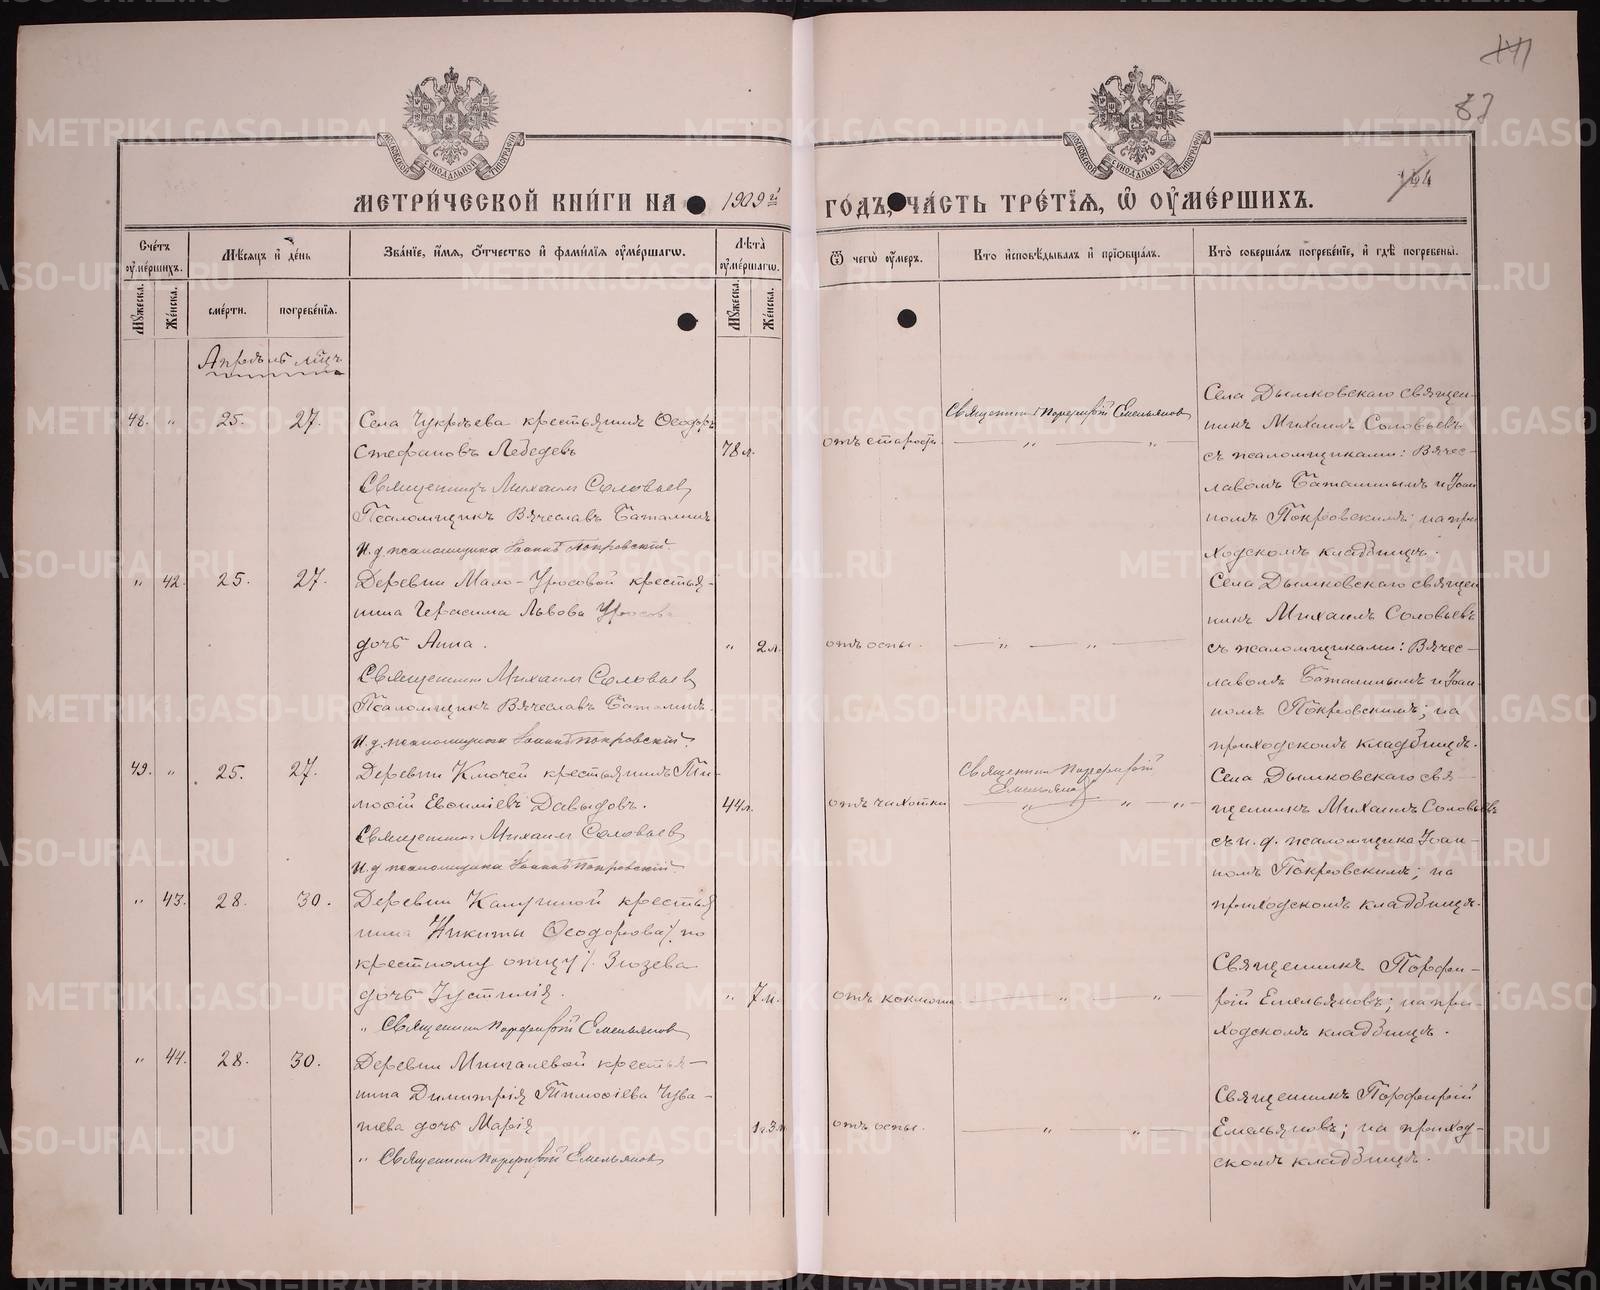 141
83
144
МЕТРИ́ЧЕСКОЙ КНИ́ГИ НА 1909 й
ГО́ДЪ, ЧА́СТЬ ТРЕ́ТІѦ, Ѡ҆ ОУ҆МЕ́РШИХЪ.
Сче́тъ оу҆ме́ршихъ.
Мѣ́сѧцъ и҆ де́нь
Зва́нїе, и҆́мѧ, ѻ҆́тчество и҆ фами́лїѧ оу҆ме́ршагѡ.
Лѣ́та оу҆ме́ршагѡ.
Ѿ чегѡ̀ оу҆́меръ.
Кто̀ и҆сповѣ́дывалъ и҆ прїѡбща́лъ.
Кто̀ соверша́лъ погребе́нїе, и҆ гдѣ̀ погребены̀.
Мꙋ́жеска.
Же́нска.
сме́рти.
погребе́нїѧ.
Мꙋ́жеска.
Же́нска.
Апрѣль мцъ
48. " 25. 27. Села Чукрѣева крестьянинъ Ѳеодоръ
Стефановъ Лебедевъ 78 л.
Священникъ Михаилъ Соловьевъ
Псаломщикъ Вячеславъ Баталинъ
И. д. псаломщика Іоаннъ Покровскій.
отъ старости
Священникъ Порфирій Емельяновъ
Села Дымковскаго священ-
никъ Михаилъ Соловьевъ
съ псаломщиками: Вячес-
лавомъ Баталинымъ и Іоан-
номъ Покровскимъ; на при-
ходскомъ кладбищѣ.
" 42. 25. 27. Деревни Мало-Уросовой крестья-
нина Герасима Львова Уросова
дочь Анна. " 2 л.
Священникъ Михаилъ Соловьевъ
Псаломщикъ Вячеславъ Баталинъ.
И. д. псаломщика Іоаннъ Покровскій.
отъ оспы.
Села Дымковскаго священ
никъ Михаилъ Соловьевъ
съ псаломщиками: Вячес-
лавомъ Баталинымъ и Іоан-
номъ Покровскимъ; на
приходскомъ кладбищѣ.
49. " 25. 27. Деревни Ключей крестьянинъ Ти-
моѳій Евѳиміевъ Давыдовъ. 44 л.
Священникъ Михаилъ Соловьевъ
И. д. псаломщика Іоаннъ Покровскій.
отъ чахотки
Священникъ Порфирій
Емельяновъ
Села Дымковскаго свя-
щенникъ Михаилъ Соловьевъ
съ и. д. псаломщика Іоан-
номъ Покровскимъ; на
приходскомъ кладбищѣ.
" 43. 28. 30. Деревни Калугиной крестья
нина Никиты Ѳеодорова /. по
крестному отцу /. Зюзева
дочь Іустинія. " 7 н.
" Священникъ Порфирій Емельяновъ
отъ коклюша
Священникъ Порфи-
рій Емельяновъ; на при-
ходскомъ кладбищѣ.
" 44. 28. 30. Деревни Мингалевой крестья-
нина Димитрія Тимоѳіева Чува-
шева дочь Марія 1 г. 3 м
" Священникъ Порфирій Емельяновъ
отъ оспы.
Священникъ Порфирій
Емельяновъ; на приход-
скомъ кладбищѣ.
METRIKI.GASO-URAL.RU